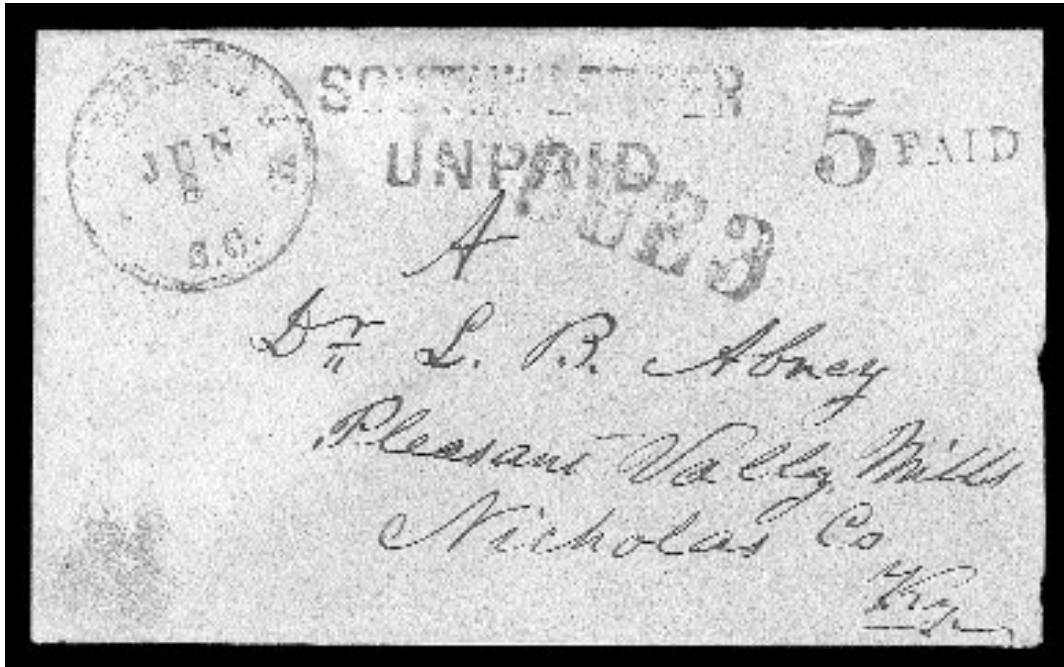 SOUTHN LETTER
UNPAID
5 PAID
JUN
S.C.
DUE 3
A
Dr L. B. Abney
Pleasant Vally Mills
Nicholas Co
Ky.